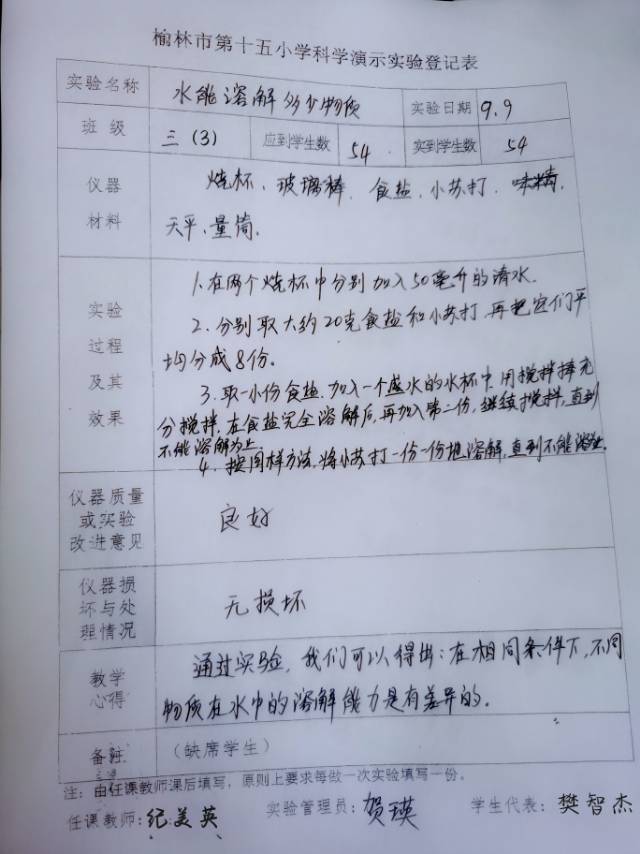 榆林市第十五小学科学演示实验登记表
实验名称 水能溶解多少物质 实验日期 9.9
班级 三(3) 应到学生数 54 实到学生数 54
仪器材料 烧杯、玻璃棒、食盐、小苏打、味精、
天平、量筒。
实验过程及其效果
1.在两个烧杯中分别加入50毫升的清水.
2.分别取大约20克食盐和小苏打,再把它们平
均分成8份.
3.取一小份食盐,加入一个盛水的水杯中,用搅拌棒充
分搅拌,在食盐完全溶解后,再加入第二份,继续搅拌,直到
不能溶解为止
4.按同样方法,将小苏打一份一份地溶解,直到不能溶解.
仪器质量或实验改进意见 良好
仪器损坏与处理情况 无损坏
教学心得 通过实验,我们可以得出:在相同条件下,不同
物质在水中的溶解能力是有差异的.
备注 (缺席学生)
注:由任课教师课后填写,原则上要求每做一次实验填写一份。
任课教师:纪美英 实验管理员:贺瑛 学生代表:樊智杰